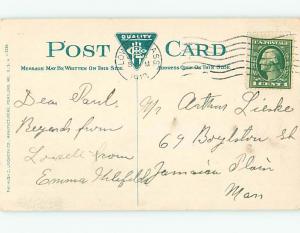 QUALITY
POST CARD
MESSAGE MAY BE WRITTEN ON THIS SIDE
ADDRESS ONLY ON THIS SIDE
Dear Paul.
Regards from
Lowell from
Emma
c/o Arthur Lieske
69 Boylston St
Jamaica Plain
Mass
1 CENT 1